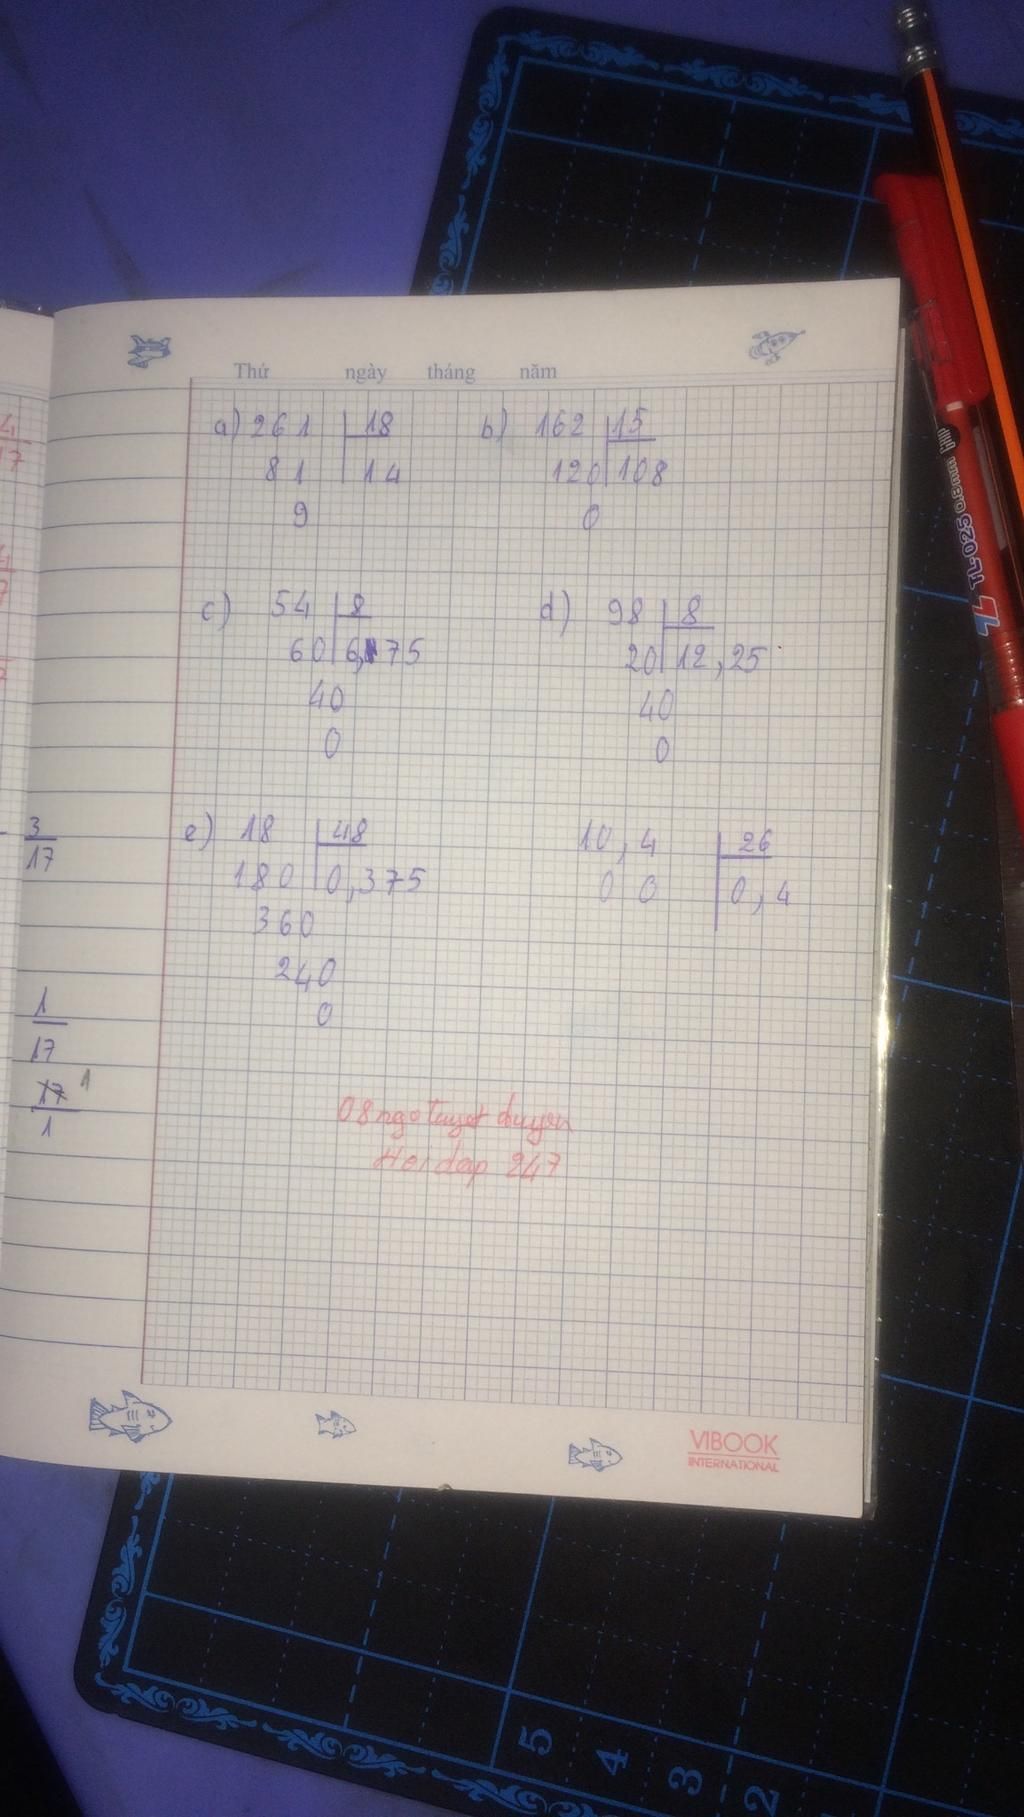 Thứ ngày tháng năm
a) 261 18 b) 162 15
81 14 120 108
9 0
c) 54 8 d) 98 8
60 6,75 20 12,25
40 40
0 0
e) 18 48 10,4 26
180 0,375 0 0 0,4
360
240
0
08 ngo tuyet duyen
Hoi dap 247
VIBOOK
INTERNATIONAL
3
17
1
17
17 1
1
TL-025
0.5mm
5
4
3
2